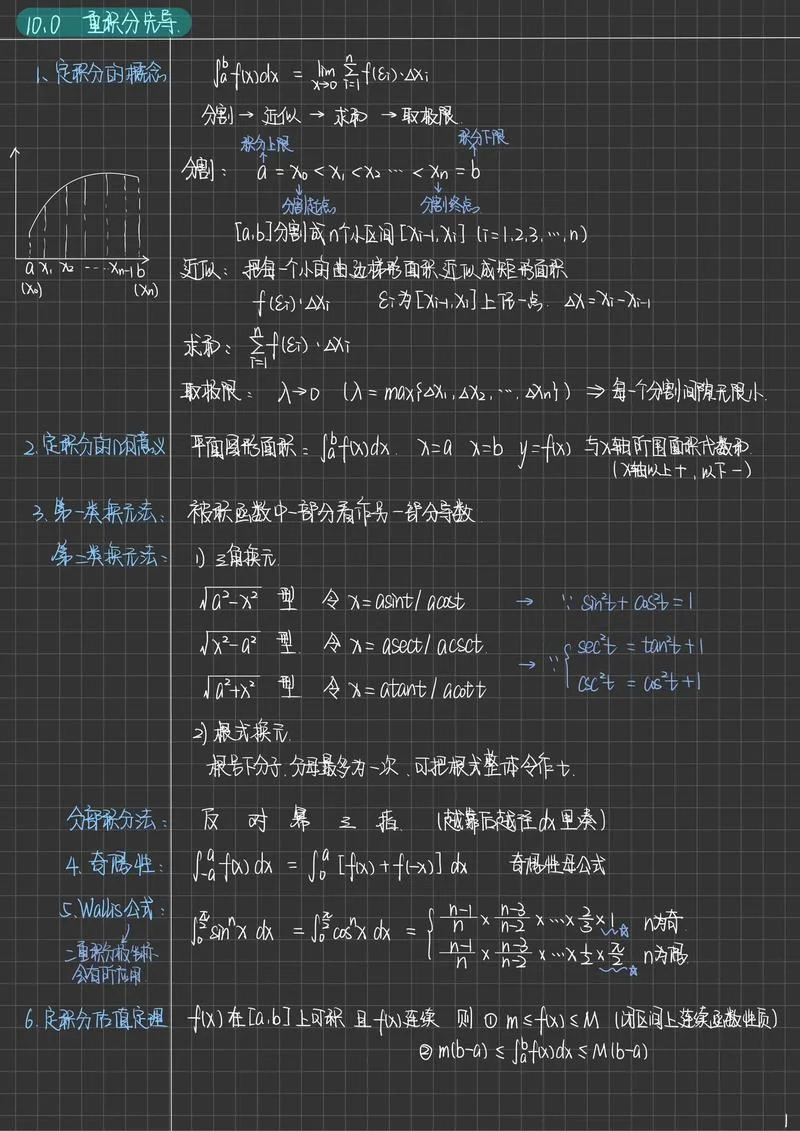 10.0 重积分先导.
1、定积分的概念
∫ₐᵇf(x)dx = lim x→0 Σ i=1 n f(εi)·△xi
分割 → 近似 → 求和 → 取极限.
积分上限 积分下限
分割: a = x₀ < x₁ < x₂ ··· < xn = b
分割起点 分割终点.
[a,b]分割成n个小区间[xi-1,xi] (i=1,2,3,···,n)
a x₁ x₂ --- xn-1 b
(x₀) (xn)
近似: 把每一个小的曲边梯形面积近似成矩形面积
f(εi)·△xi εi为[xi-1,xi]上任一点. △x=xi-xi-1
求和: Σ i=1 n f(εi)·△xi
取极限: λ→0 (λ=max{△x₁,△x₂,···,△xn}) ⇒ 每一个分割间隙无限小.
2.定积分的几何意义
平面图形面积: ∫ₐᵇf(x)dx. x=a x=b y=f(x) 与x轴所围面积代数和.
(x轴以上+,以下-)
3.第一类换元法: 被积函数中一部分看作另一部分导数
第二类换元法: 1) 三角换元.
√a²-x² 型 令 x=asint/acost → ∵ sin²t+cos²t=1
√x²-a² 型 令 x=asect/acsct. → ∵ { sec²t = tan²t+1
√a²+x² 型 令 x=atant/acott csc²t = cos²t+1
2) 根式换元.
根号下分子.分母最多为一次、可把根式整体令作t.
分部积分法: 反 对 幂 三 指. (越靠后越往dx里凑)
4.奇偶性: ∫₋ₐᵃf(x)dx = ∫₀ᵃ[f(x)+f(-x)]dx 奇偶性母公式
5.Wallis公式:
∫₀^(π/2) sinⁿx dx = ∫₀^(π/2) cosⁿx dx = { n-1/n × n-3/n-2 ×···× 2/3 × 1☆ n为奇.
n-1/n × n-3/n-2 ×···× 1/2 × π/2☆ n为偶.
二重积分极坐标
会有所应用.
6.定积分估值定理
f(x)在[a,b]上可积 且f(x)连续 则 ① m≤f(x)≤M (闭区间上连续函数性质)
② m(b-a) ≤ ∫ₐᵇf(x)dx ≤ M(b-a)
1